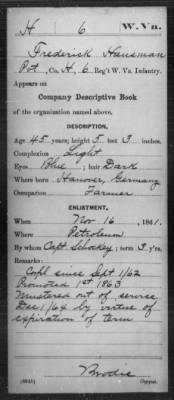 H 6 W. Va.
Frederick Hausman
Pvt, Co. H, 6 Reg't W. Va. Infantry.
Appears on
Company Descriptive Book
of the organization named above.
DESCRIPTION.
Age 45 years; height 5 feet 3 inches.
Complexion Light
Eyes Blue; hair Dark
Where born Hanover, Germany
Occupation Farmer
ENLISTMENT.
When Nov 16, 1861.
Where Petroleum
By whom Capt Schockey; term 3 y'rs.
Remarks:
Copl since Sept 1/62
Promoted 1st 1863
Mustered out of service
Dec 1/64 by virtue of
expiration of term
Brodie
Copyist.